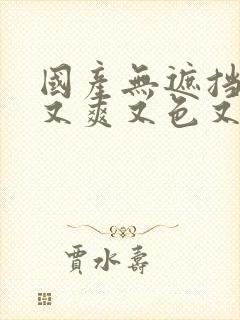 國產無遮挡
又爽又色又
賈水壽